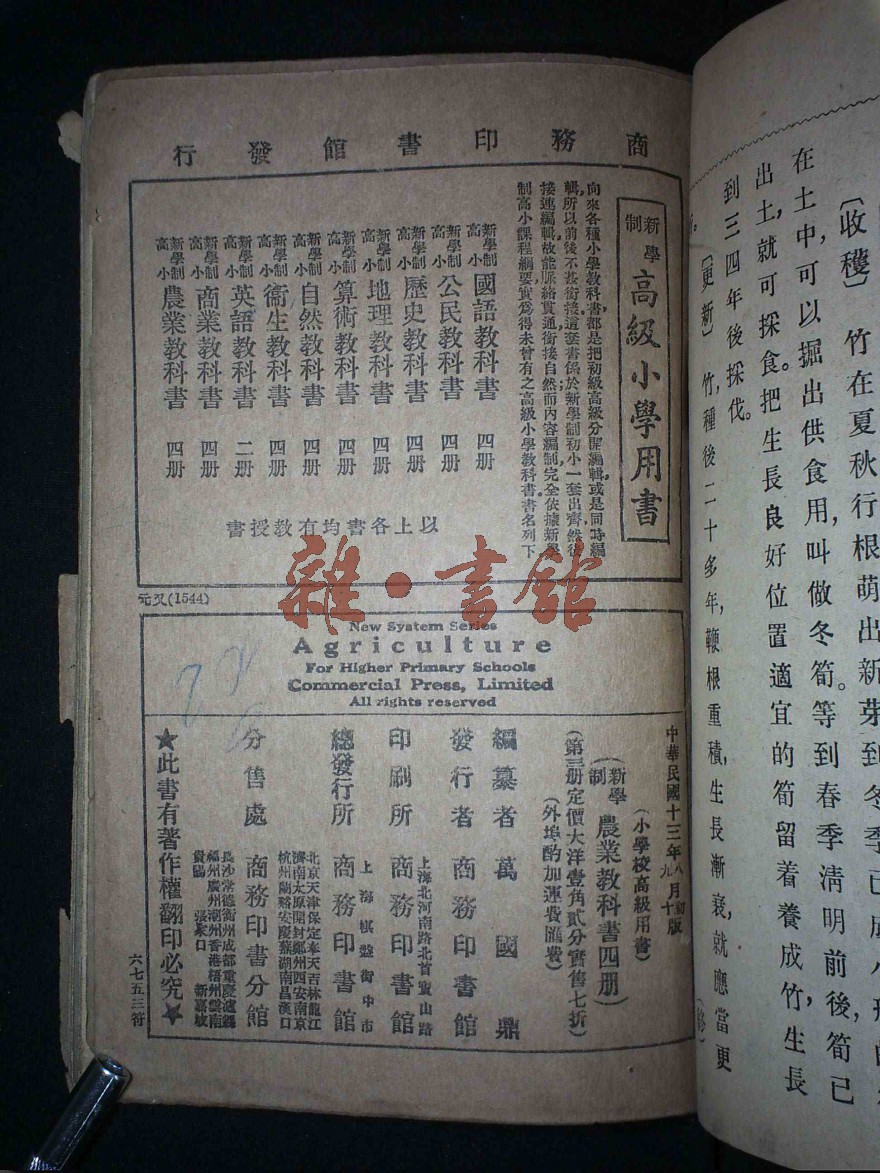 〔收穫〕 竹在夏秋行根萌出新芽到冬季已成小形的
在土中，可以掘出供食用，叫做冬筍。等到春季清明前後，筍已
出土，就可採食。把生長良好位置適宜的筍留着養成竹，生長
到三四年後採伐。
〔更新〕 竹，種後二十多年，鞭根重積，生長漸衰，就應當更
新。
商務印書館發行
新學制 高級小學用書
向來各種小學教科書，都是把初級高級分開編輯，或是同時編
輯，所以前後不甚銜接。這套書係於新學制初小一套出齊，然後
接連編輯，故能脈絡貫通，銜接自然；而內容編制，完全依據新學
制高小課程綱要，實爲得未曾有之高級小學教科書。書名列下
新學制高小 國語教科書 四册
新學制高小 公民教科書 四册
新學制高小 歷史教科書 四册
新學制高小 地理教科書 四册
新學制高小 算術教科書 四册
新學制高小 自然教科書 四册
新學制高小 衞生教科書 四册
新學制高小 英語教科書 二册
新學制高小 商業教科書 四册
新學制高小 農業教科書 四册
以上各書均有教授書
元又(1544)
雜·書館
New System Series
Agriculture
For Higher Primary Schools
Commercial Press, Limited
All rights reserved
中華民國十三年八月初版
（小學校高級用書）
（新學制 農業教科書四册）
（第三册定價大洋壹角貳分實售七折）
（外埠酌加運費匯費）
編纂者 萬國鼎
發行者 商務印書館
上海北河南路北首寶山路
印刷所 商務印書館
上海棋盤街中市
總發行所 商務印書館
分售處 商務印書分館
北京天津保定奉天吉林龍江
濟南太原開封鄭州西安南京
杭州蘭谿安慶蕪湖南昌漢口
長沙常德衡州成都重慶瀘縣
福州廣州潮州香港梧州雲南
貴陽 張家口 新嘉坡
★此書有著作權翻印必究★
六七五三符